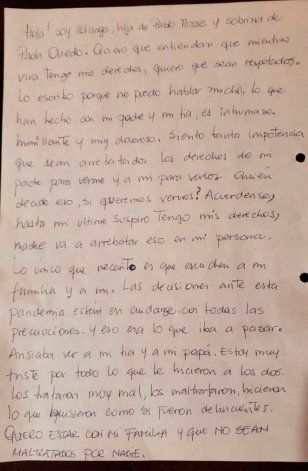 Hola! soy Solange, hija de Pablo Musse y sobrina de
Paola Oviedo. Quiero que entiendan que mientras
viva tengo mis derechos, quiero que sean respetados.
Lo escribo porque no puedo hablar mucho, lo que
han hecho con mi padre y mi tia, es inhumano.
humillante y muy doloroso. Siento tanta impotencia
que sean arrebatados los derechos de mi
padre para verme y a mi para verlos. Quien
decide eso, si queremos vernos? Acuerdense,
hasta mi ultimo suspiro tengo mis derechos,
nadie va a arrebatar eso en mi persona.
Lo unico que necesito es que escuchen a mi
familia y a mi. Las decisiones ante esta
pandemia estan en cuidarse con todas las
precauciones. Y eso era lo que iba a pasar.
Ansiaba ver a mi tia y a mi papá. Estoy muy
triste por todo lo que le hicieron a los dos.
Los trataron muy mal, los maltrataron, hicieron
lo que quisieron como si fueron delincuentes.
QUIERO ESTAR CON MI FAMILIA Y QUE NO SEAN
MALTRATADOS POR NADIE.